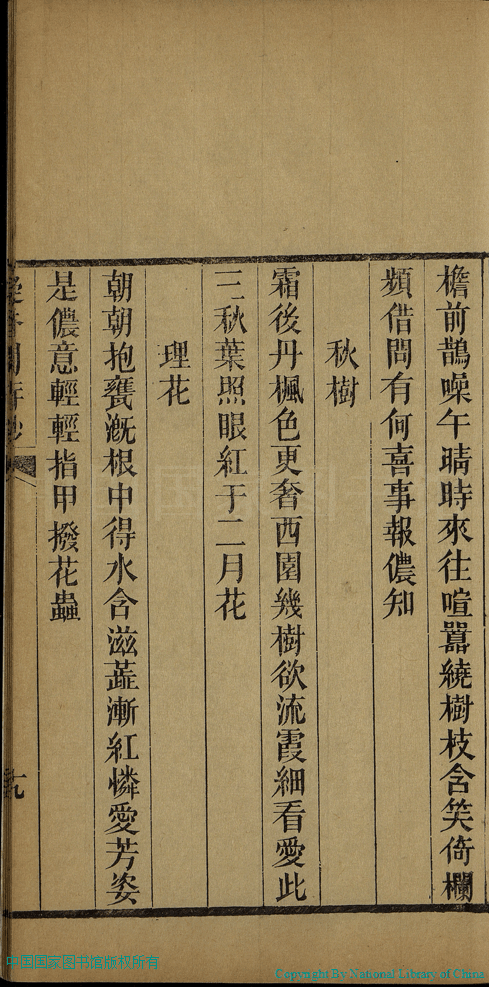 檐前鵲噪午晴時來往喧囂繞樹枝含笑倚欄
頻借問有何喜事報儂知
秋樹
霜後丹楓色更奢西園幾樹欲流霞細看愛此
三秋葉照眼紅于二月花
理花
朝朝抱甕漑根中得水含滋蘂漸紅憐愛芳姿
是儂意輕輕指甲撥花蟲
九
中国国家图书馆版权所有
Copyright By National Library of China